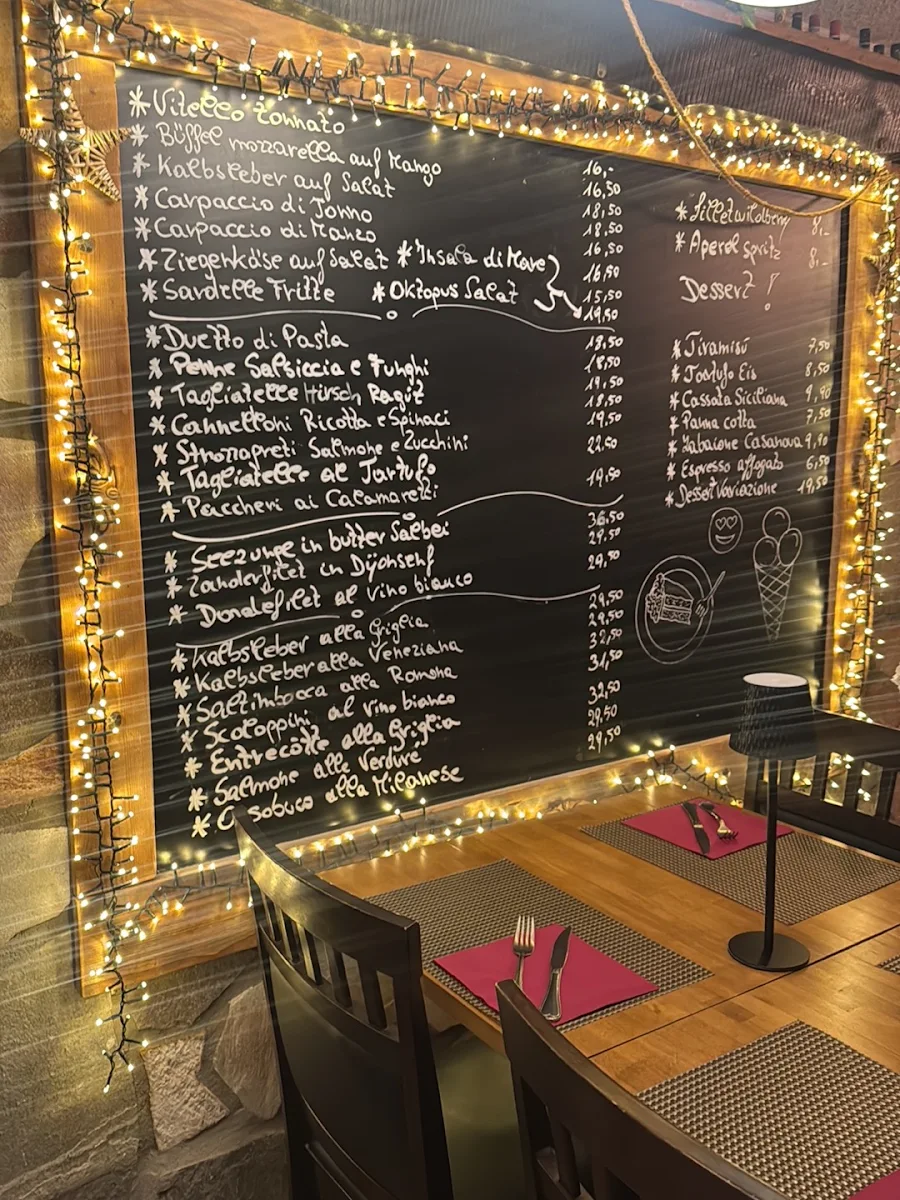 *Vitello Tonnato 16,-
*Büffel mozzarella auf Mango 16,50
*Kalbsleber auf Salat 18,50
*Carpaccio di Tonno 18,50
*Carpaccio di Manzo 16,50
*Ziegenkäse auf Salat *Insala di Mare 16,50
*Sardelle Fritte *Oktopus Salat 15,50
19,50
*Duetto di Pasta 18,50
*Penne Salsiccia e Funghi 18,50
*Tagliatelle Hirsch Ragù 19,50
*Cannelloni Ricotta e Spinaci 18,50
*Strozzapreti Salmone e Zucchini 19,50
*Tagliatelle al Tartufo 22,50
*Paccheri ai Calamaretti 19,50
*Seezunge in butter Salbei 36,50
*Zanderfilet in Dijonsenf 29,50
*Doradefilet al vino bianco 29,50
*Kalbsleber alla Griglia 29,50
*Kalbsleber alla Veneziana 29,50
*Saltimbocca alla Romana 32,50
*Scaloppini al vino bianco 31,50
*Entrecôtte alla Griglia 32,50
*Salmone alle Verdure 29,50
*Ossobuco alla Milanese 29,50
*Aperol Spritz 8,-
Dessert!
*Tiramisú 7,50
*Tartufo Eis 8,50
*Cassata Siciliana 9,90
*Panna cotta 7,50
*Zabaione Casanova 9,90
*Espresso affogato 6,50
*Dessert Variazione 19,50